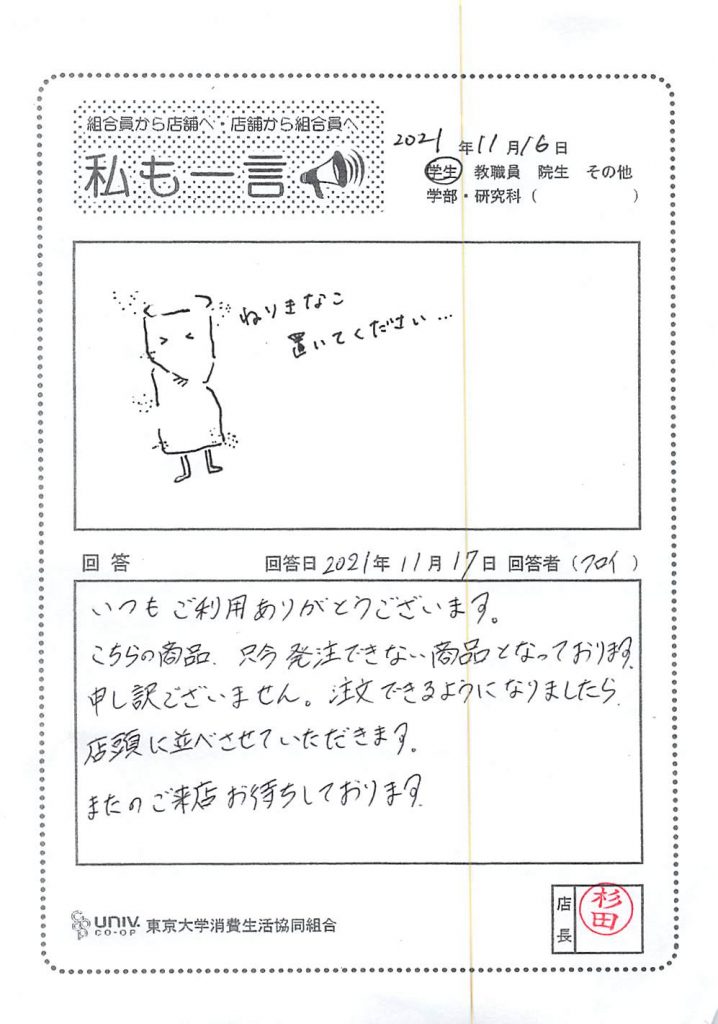 組合員から店舗へ・店舗から組合員へ
私も一言
2021年11月16日
学生 教職員 院生 その他
学部・研究科( )
ねりきなこ
置いてください…
回答 回答日2021年11月17日 回答者(クロイ)
いつもご利用ありがとうございます。
こちらの商品、只今発注できない商品となっております。
申し訳ございません。注文できるようになりましたら、
店頭に並べさせていただきます。
またのご来店お待ちしております。
UNIV. CO-OP 東京大学消費生活協同組合
店長 杉田